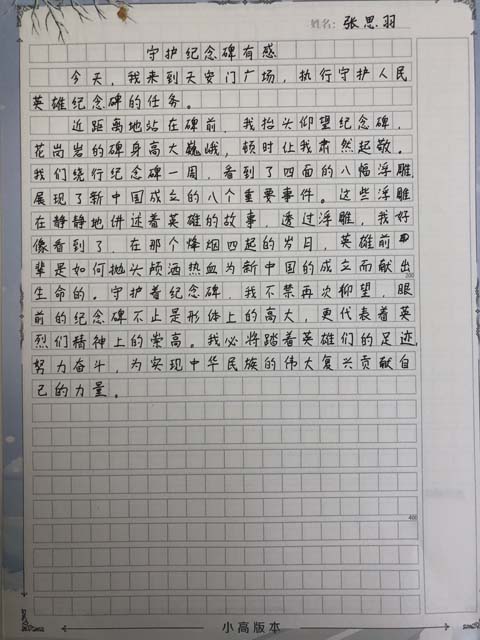 姓名：张思羽
守护纪念碑有感
今天，我来到天安门广场，执行守护人民
英雄纪念碑的任务。
近距离地站在碑前，我抬头仰望纪念碑，
花岗岩的碑身高大巍峨，顿时让我肃然起敬。
我们绕行纪念碑一周，看到了四面的八幅浮雕
展现了新中国成立的八个重要事件。这些浮雕
在静静地讲述着英雄的故事，透过浮雕，我好
像看到了，在那个烽烟四起的岁月，英雄前
辈是如何抛头颅洒热血为新中国的成立而献出
200
生命的。守护着纪念碑，我不禁再次仰望，眼
前的纪念碑不止是形体上的高大，更代表着英
烈们精神上的崇高。我必将踏着英雄们的足迹，
努力奋斗，为实现中华民族的伟大复兴贡献自
己的力量。
400
小高版本